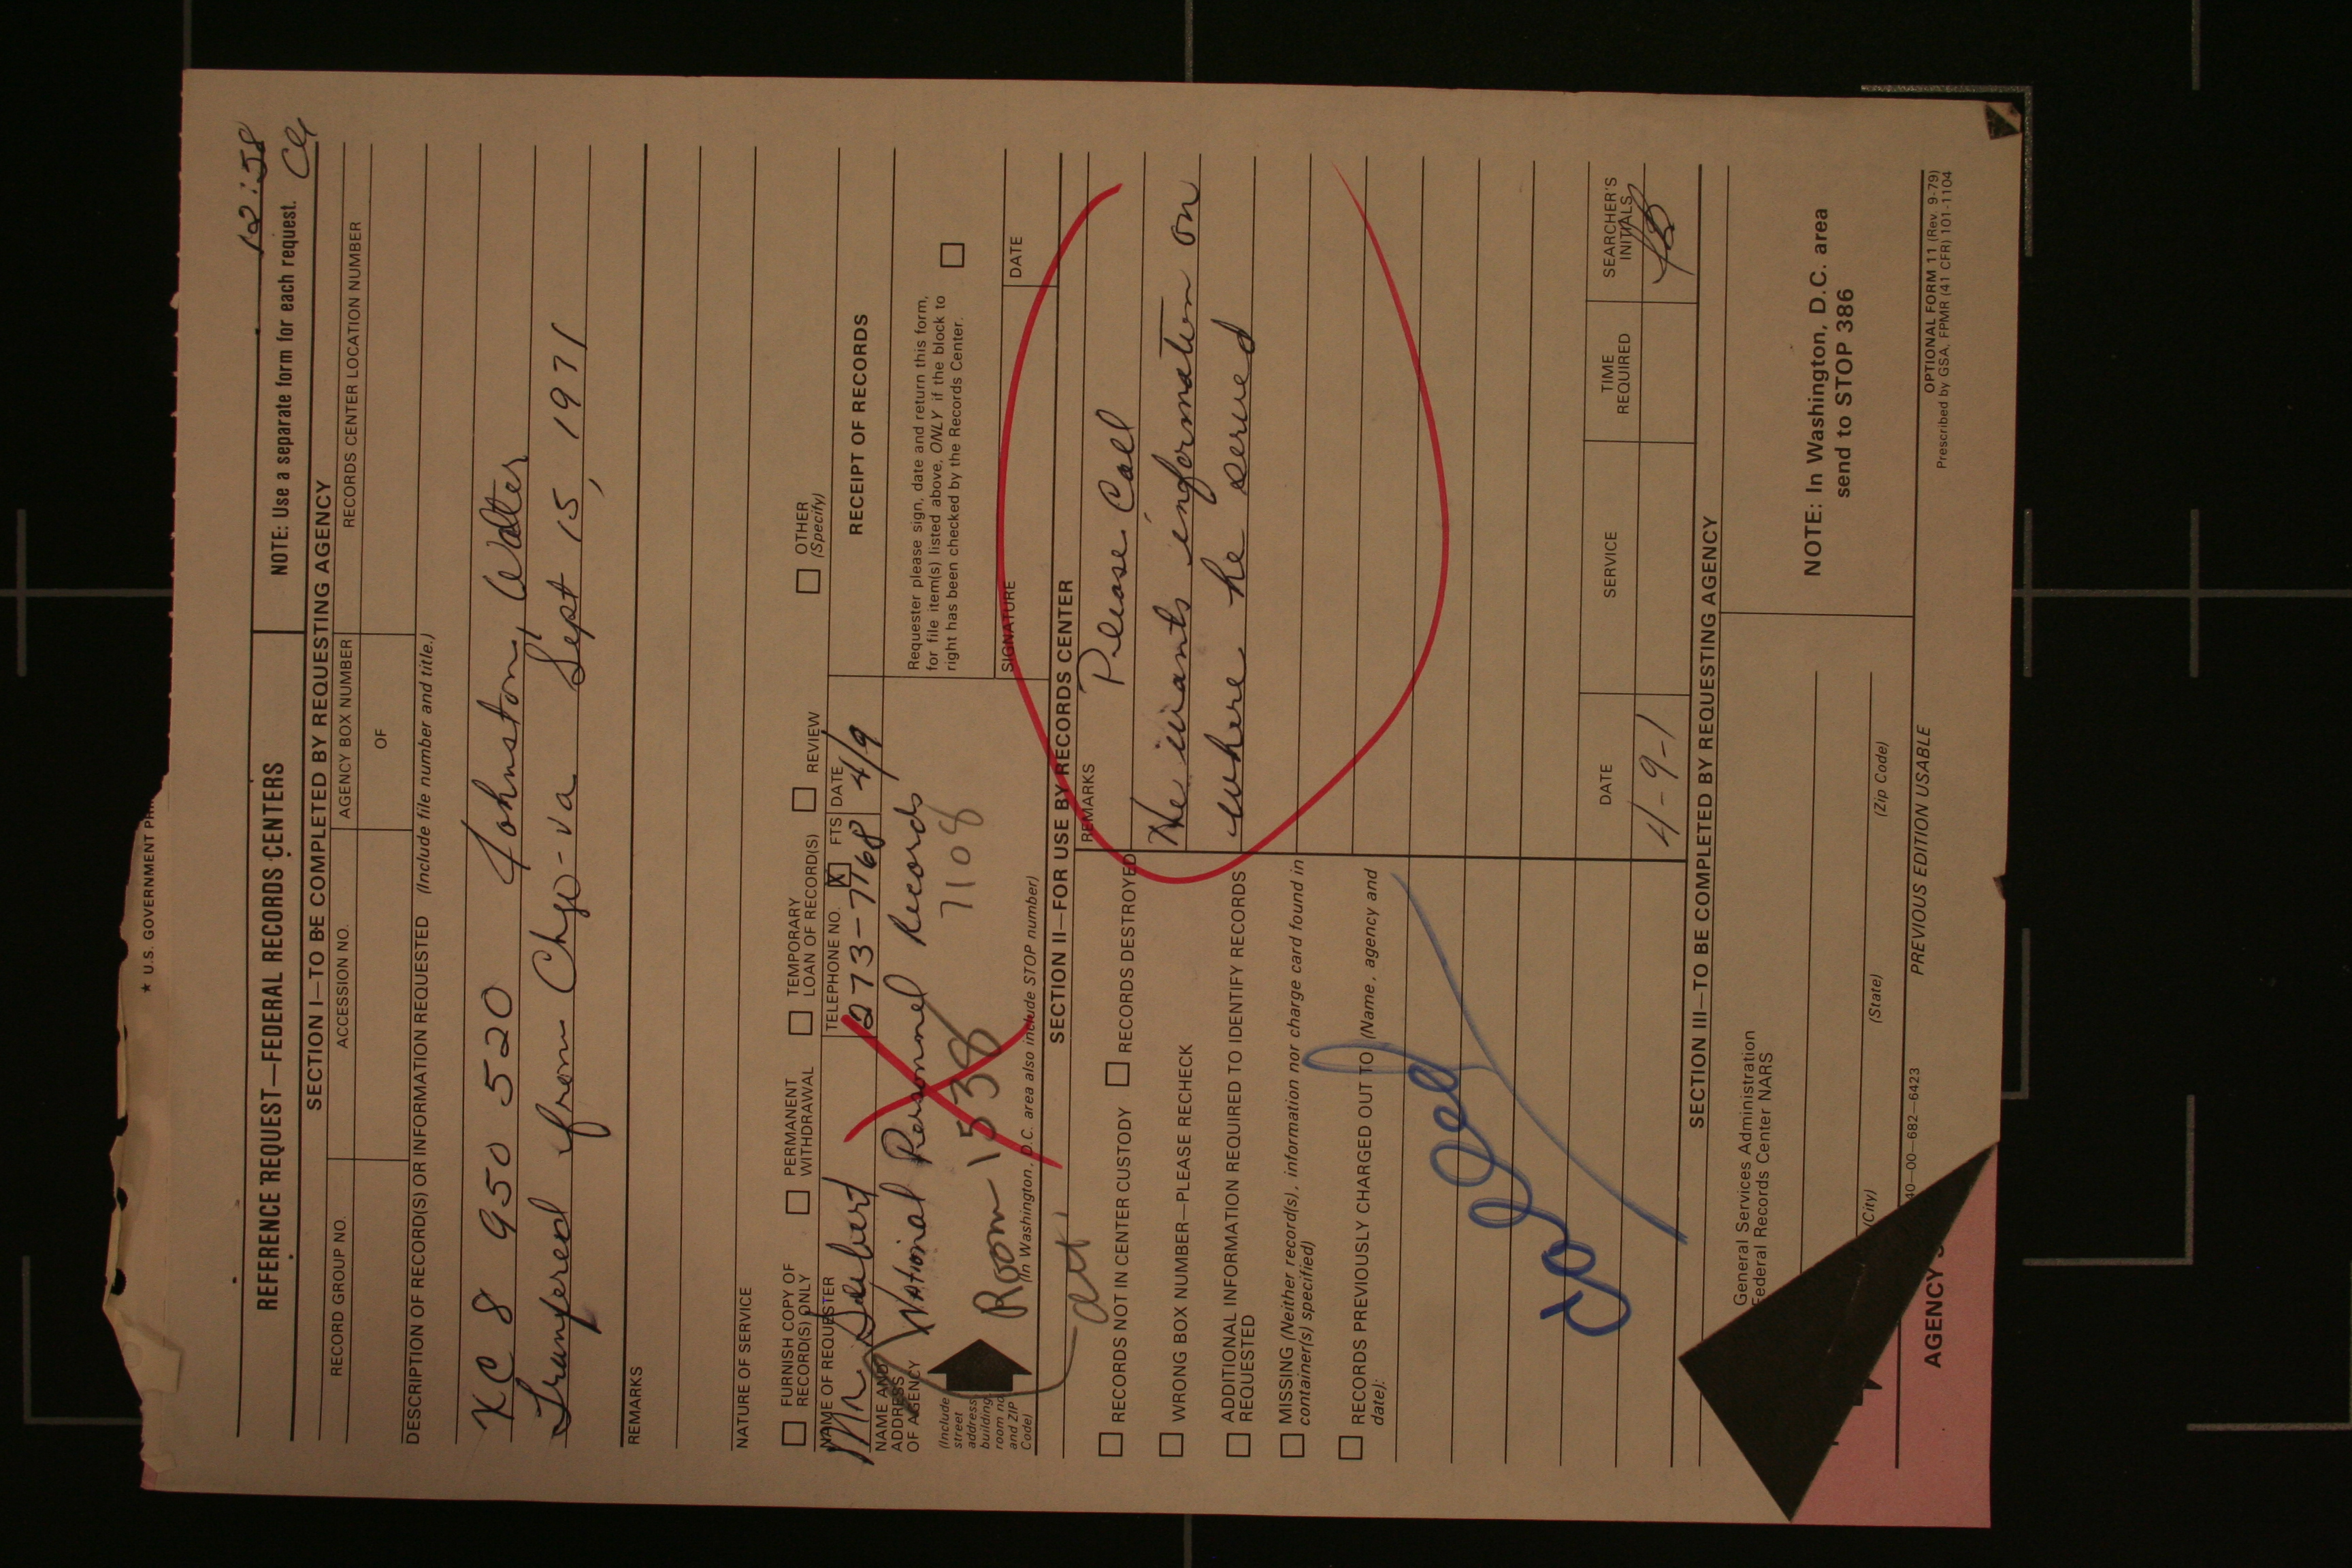 ★ U.S. GOVERNMENT
12:58
REFERENCE REQUEST—FEDERAL RECORDS CENTERS
NOTE: Use a separate form for each request.
SECTION I—TO BE COMPLETED BY REQUESTING AGENCY
RECORD GROUP NO.
ACCESSION NO.
AGENCY BOX NUMBER
RECORDS CENTER LOCATION NUMBER
OF
DESCRIPTION OF RECORD(S) OR INFORMATION REQUESTED (Include file number and title.)
XC 8 950 520 Johnston, Walter
Transfered from Chgo-va Sept 15, 1971
REMARKS
NATURE OF SERVICE
FURNISH COPY OF RECORD(S) ONLY
PERMANENT WITHDRAWAL
TEMPORARY LOAN OF RECORD(S)
REVIEW
OTHER (Specify)
NAME OF REQUESTER
Mr.
TELEPHONE NO.
X FTS
273-7768
DATE
4/9
RECEIPT OF RECORDS
NAME AND ADDRESS OF AGENCY
(Include street address, building room no and ZIP Code)
National Personnel Records
7108
Room-1538
(In Washington, D.C. area also include STOP number)
Requester please sign, date and return this form,
for file item(s) listed above, ONLY if the block to
right has been checked by the Records Center.
SIGNATURE
DATE
SECTION II—FOR USE BY RECORDS CENTER
RECORDS NOT IN CENTER CUSTODY
RECORDS DESTROYED
WRONG BOX NUMBER—PLEASE RECHECK
ADDITIONAL INFORMATION REQUIRED TO IDENTIFY RECORDS
REQUESTED
MISSING (Neither record(s), information nor charge card found in
container(s) specified)
RECORDS PREVIOUSLY CHARGED OUT TO (Name, agency and
date):
REMARKS
Please Call
He wants information on
where he served
DATE
SERVICE
TIME REQUIRED
SEARCHER'S INITIALS
4-9-1
SECTION III—TO BE COMPLETED BY REQUESTING AGENCY
General Services Administration
Federal Records Center NARS
NOTE: In Washington, D.C. area
send to STOP 386
(City)
(State)
(Zip Code)
40—00—682—6423
PREVIOUS EDITION USABLE
OPTIONAL FORM 11 (Rev. 9-79)
Prescribed by GSA, FPMR (41 CFR) 101-1104
AGENCY